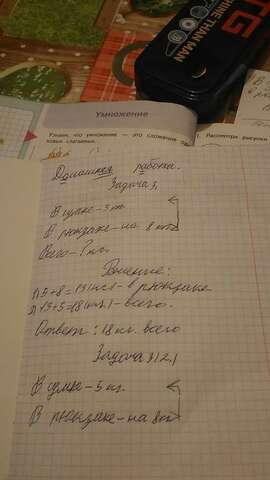 THAN MAN
Умножение
Узнаем, что умножение — это сложение
ковых слагаемых.
1. Рассмотри рисунки
Домашняя работа.
Задача 3.
В сумке – 5 кг.
В рюкзаке – на 8 кг
Всего – ? кг.
Решение:
1) 5 + 8 = 13 (кг.) – в рюкзаке
2) 13 + 5 = 18 (кг.) – всего.
Ответ: 18 кг. всего
Задача
В сумке – 5 кг.
В рюкзаке – на 8 кг